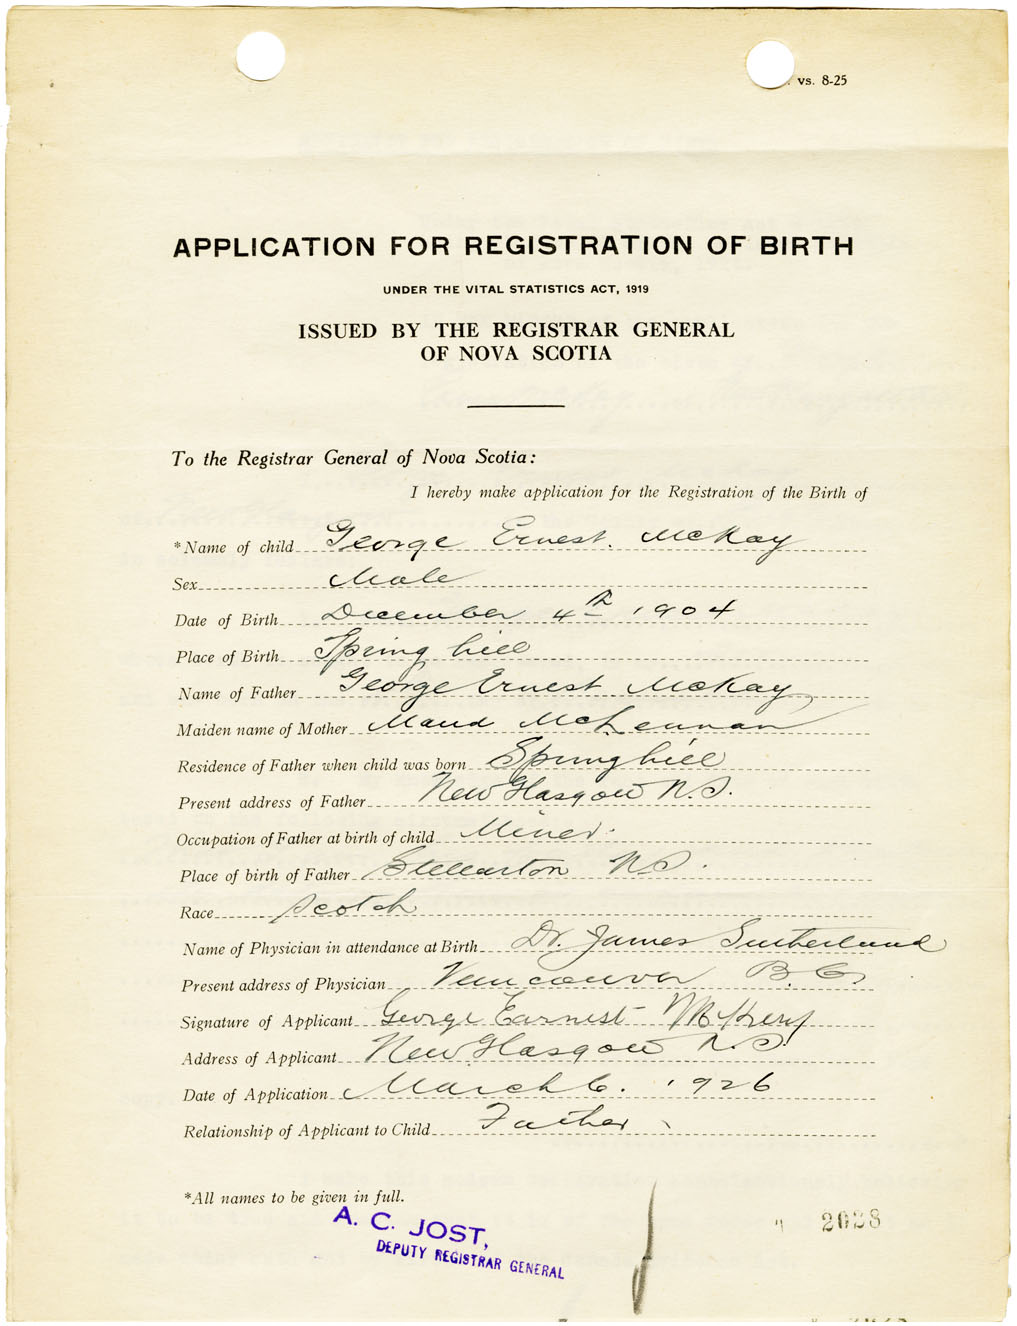 . vs. 8-25
APPLICATION FOR REGISTRATION OF BIRTH
UNDER THE VITAL STATISTICS ACT, 1919
ISSUED BY THE REGISTRAR GENERAL
OF NOVA SCOTIA
To the Registrar General of Nova Scotia:
I hereby make application for the Registration of the Birth of
*Name of child George Ernest. McKay
Sex Male
Date of Birth December 4th 1904
Place of Birth Spring hill
Name of Father George Ernest McKay
Maiden name of Mother Maud McLennan
Residence of Father when child was born Springhill
Present address of Father New Glasgow N.S.
Occupation of Father at birth of child Miner
Place of birth of Father Stellarton N.S.
Race Scotch
Name of Physician in attendance at Birth Dr. James Sutherland
Present address of Physician Vancouver B.C.
Signature of Applicant George Earnest
Address of Applicant New Glasgow N.S.
Date of Application March 6. 1926
Relationship of Applicant to Child Father
*All names to be given in full.
A. C. JOST,
DEPUTY REGISTRAR GENERAL
2028